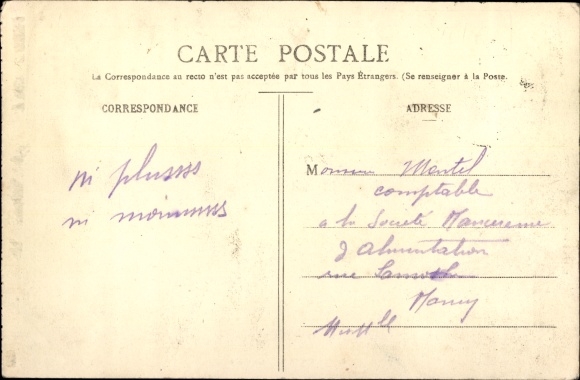 CARTE POSTALE
La Correspondance au recto n'est pas acceptée par tous les Pays Étrangers. (Se renseigner à la Poste.
CORRESPONDANCE
ADRESSE
ni plussss
ni moinssss
Monsieur Mantel
comptable
a la Societé Nanceienne
d'Alimentation
rue
Nancy